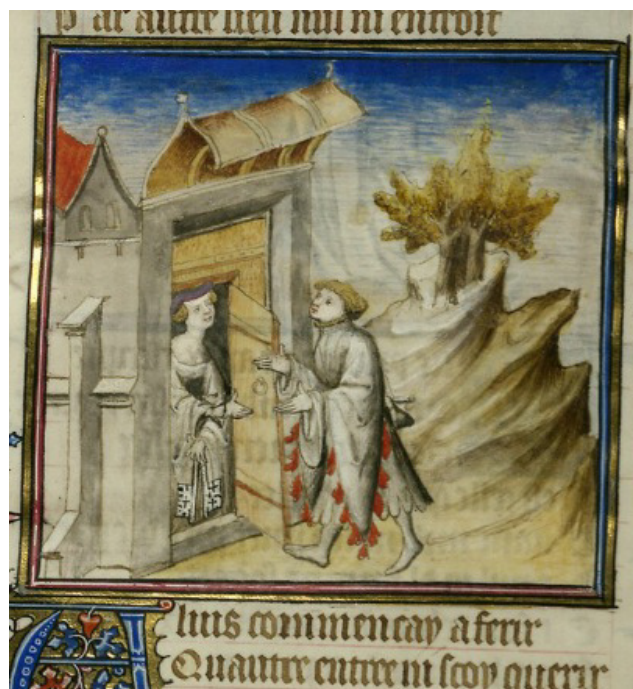 Par autre lieu nul ni entroit
A luis commencay a ferir
Quautre entree ni scoy querir